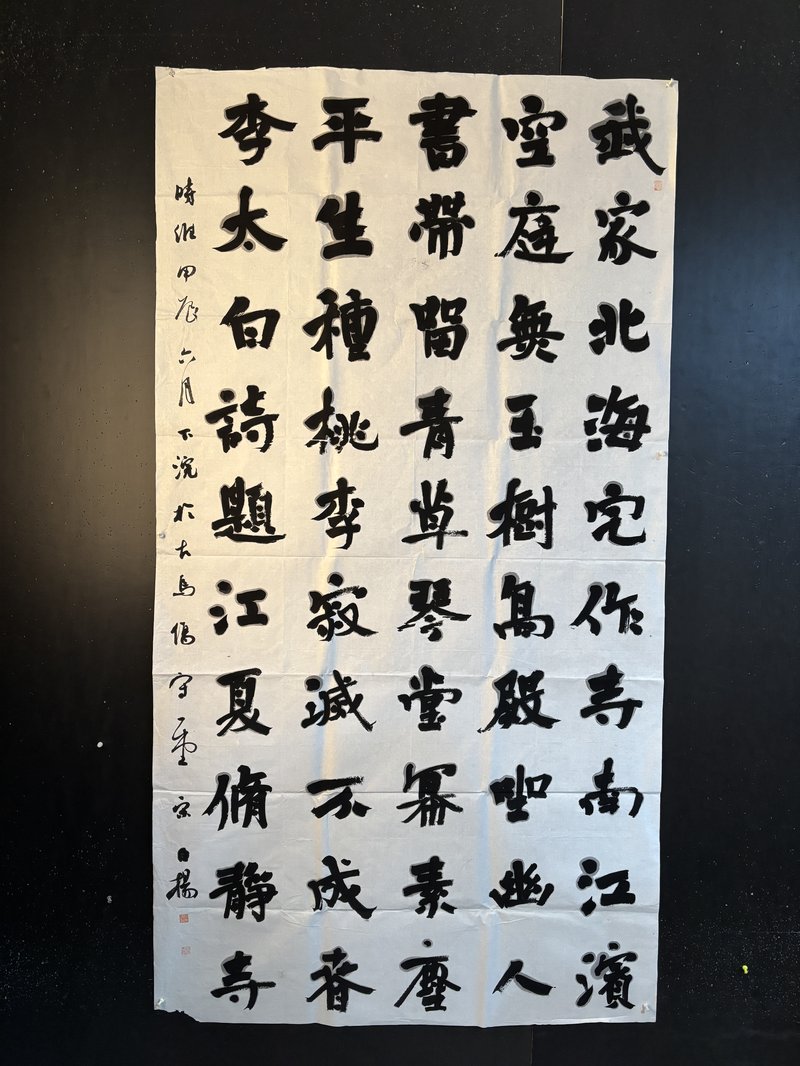 我家北海宅作寺南江濱
空庭無玉樹高殿坐幽人
書帶留青草琴堂冪素塵
平生種桃李寂滅不成春
李太白詩題江夏脩靜寺
時維甲辰六月下浣於